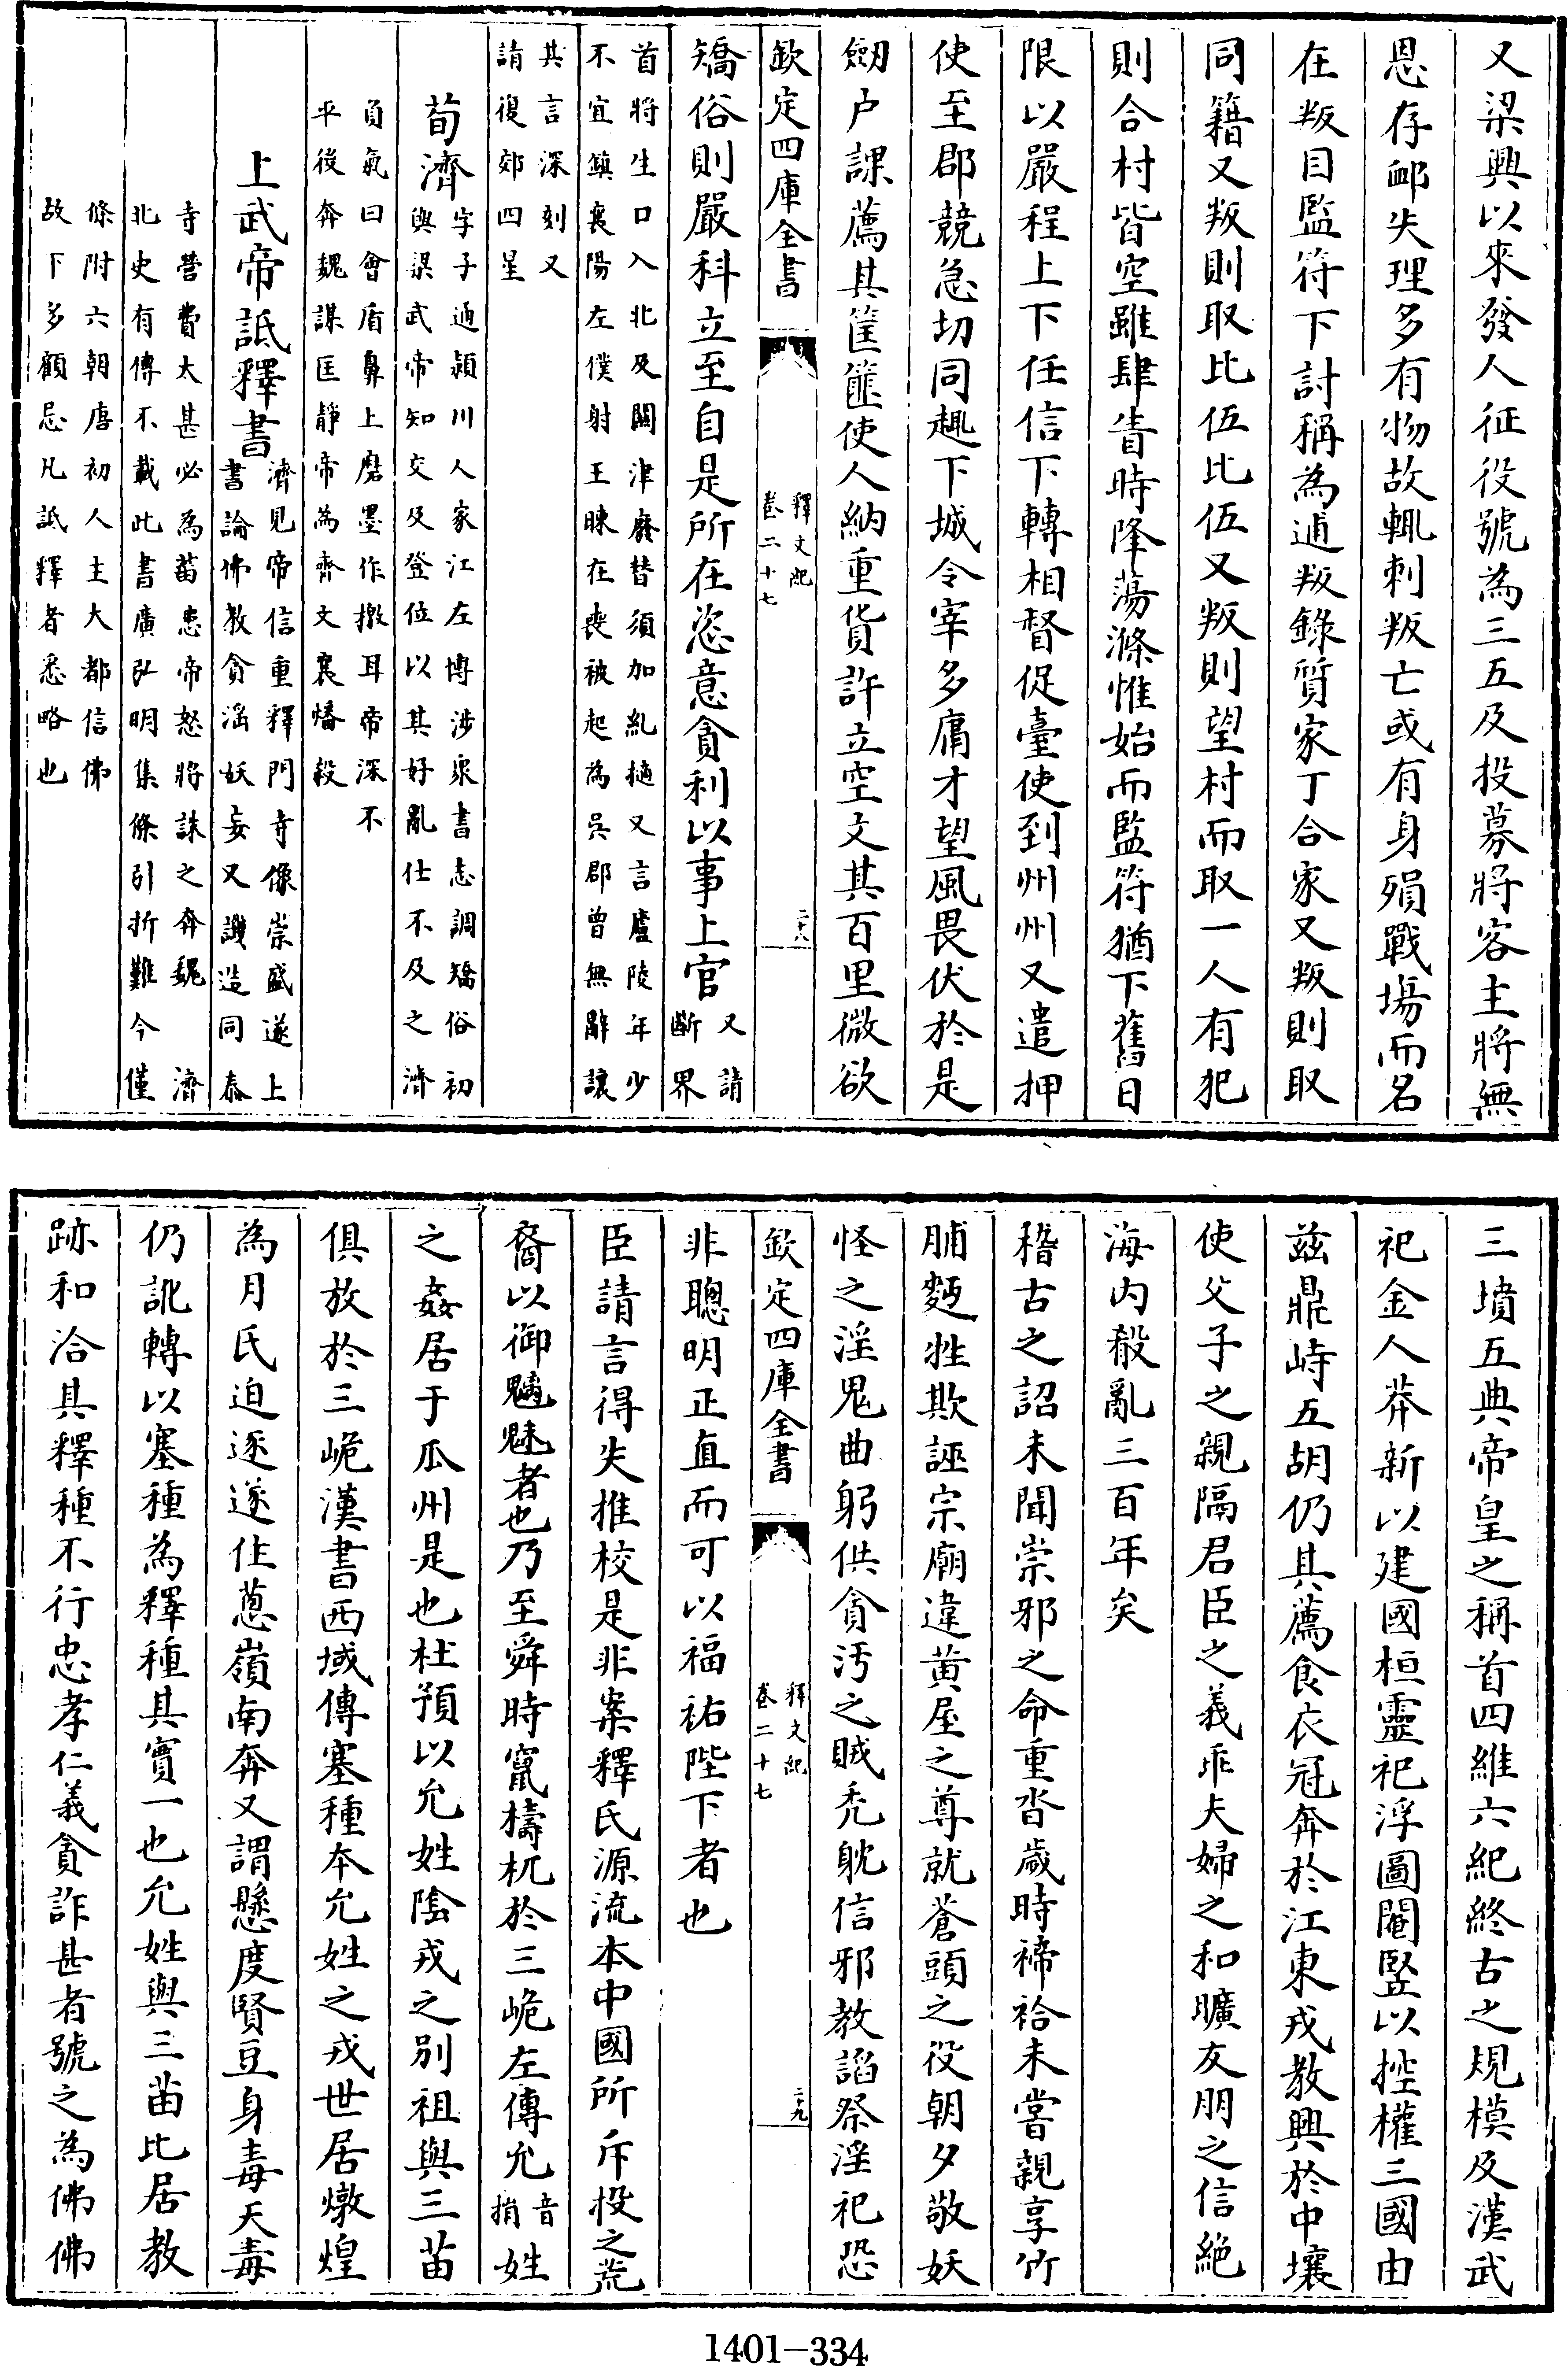 又梁興以來發人征役號為三五及投募將客主將無
恩存卹失理多有物故輒刺叛亡或有身殞戰場而名
在叛目監符下討稱為逋叛錄質家丁合家又叛則取
同籍又叛則取比伍比伍又叛則望村而取一人有犯
則合村皆空雖肆眚時降蕩滌惟始而監符猶下舊日
限以嚴程上下任信下轉相督促臺使到州州又遣押
使至郡競急切同趣下城令宰多庸才望風畏伏於是
劒户課薦其筐篚使人納重貨許立空文其百里微欲
欽定四庫全書
釋文紀
卷二十七
二十八
矯俗則嚴科立至自是所在恣意貪利以事上官又請
斷界
首將生口入北及關津廢替須加糺擿又言廬陵年少
不宜鎮襄陽左僕射王暕在喪被起為吳郡曾無辭讓
其言深刻又
請復郊四星
荀濟字子通潁川人家江左博涉衆書志調矯俗初
與梁武帝知交及登位以其好亂仕不及之濟
負氣曰會盾鼻上磨墨作檄耳帝深不
平後奔魏謀匡靜帝為齊文襄燔殺
上武帝詆釋書濟見帝信重釋門寺像崇盛遂上
書論佛教貪滛妖妄又譏造同泰
寺營費太甚必為菑患帝怒將誅之奔魏濟
北史有傳不載此書廣弘明集條引折難今僅
條附六朝唐初人主大都信佛
故下多顧忌凡詆釋者悉略也
三墳五典帝皇之稱首四維六紀終古之規模及漢武
祀金人莽新以建國桓靈祀浮圖閹豎以控權三國由
茲鼎峙五胡仍其薦食衣冠奔於江東戎教興於中壤
使父子之親隔君臣之義乖夫婦之和曠友朋之信絶
海内殽亂三百年矣
稽古之詔未聞崇邪之命重沓歲時禘祫未嘗親享竹
脯麪牲欺誣宗廟違黄屋之尊就蒼頭之役朝夕敬妖
怪之淫鬼曲躬供貪汚之賊禿躭信邪教謟祭淫祀恐
欽定四庫全書
釋文紀
卷二十七
二十九
非聰明正直而可以福祐陛下者也
臣請言得失推校是非案釋氏源流本中國所斥投之荒
裔以御魑魅者也乃至舜時竄檮杌於三峗左傳允音
捎姓
之姦居于瓜州是也杜預以允姓陰戎之别祖與三苗
俱放於三峗漢書西域傳塞種本允姓之戎世居燉煌
為月氏迫逐遂住蔥嶺南奔又謂懸度賢豆身毒天毒
仍訛轉以塞種為釋種其實一也允姓與三苗比居教
跡和洽其釋種不行忠孝仁義貪詐甚者號之為佛佛
1401-334